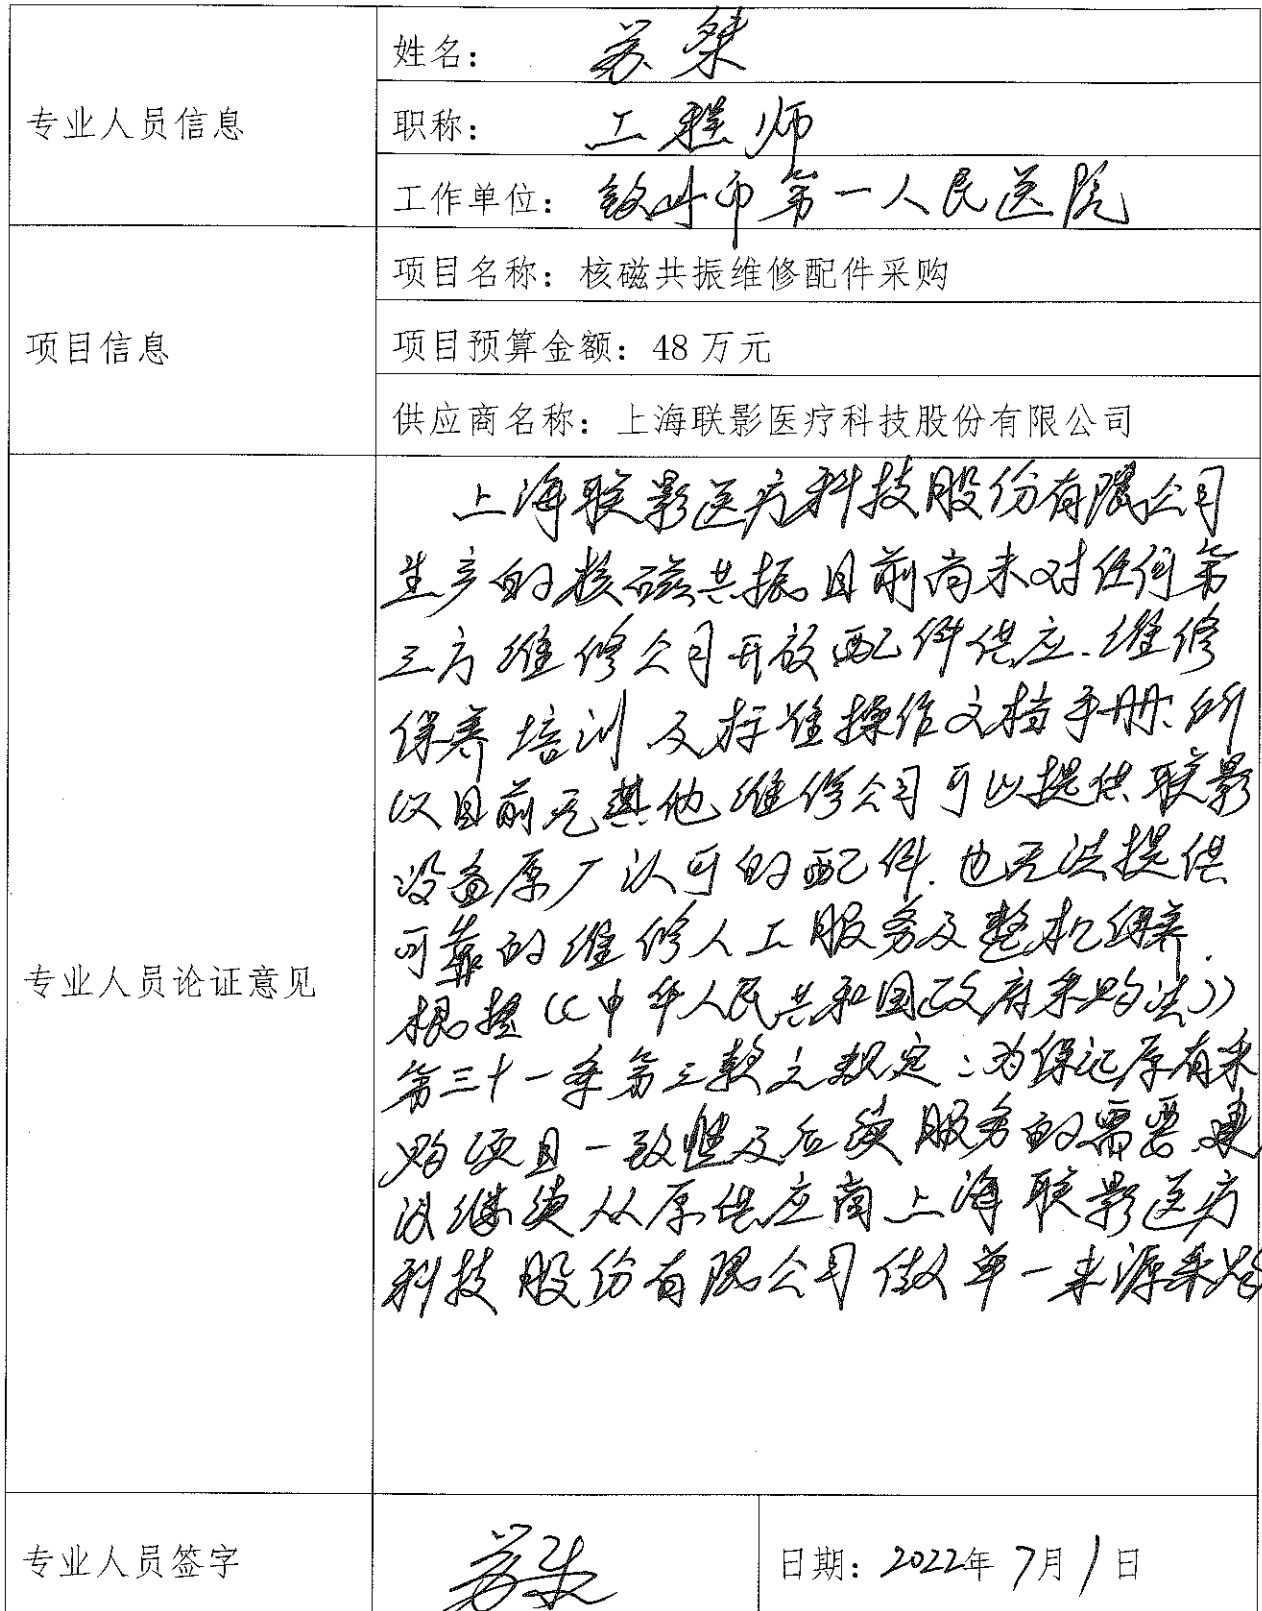 姓名：苏桀
专业人员信息
职称：工程师
工作单位：钦州市第一人民医院
项目名称：核磁共振维修配件采购
项目信息
项目预算金额：48 万元
供应商名称：上海联影医疗科技股份有限公司
专业人员论证意见
上海联影医疗科技股份有限公司
生产的核磁共振目前尚未对任何第
三方维修公司开放配件供应、维修
保养培训及标准操作文档手册、所
以目前无其他维修公司可以提供联影
设备原厂认可的配件.也无法提供
可靠的维修人工服务及整机保养.
根据《中华人民共和国政府采购法》
第三十一条第三款之规定：为保证原有采
购项目一致性及后续服务的需要建
议继续从原供应商上海联影医疗
科技股份有限公司做单一来源采购
专业人员签字
日期：2022年7月1日